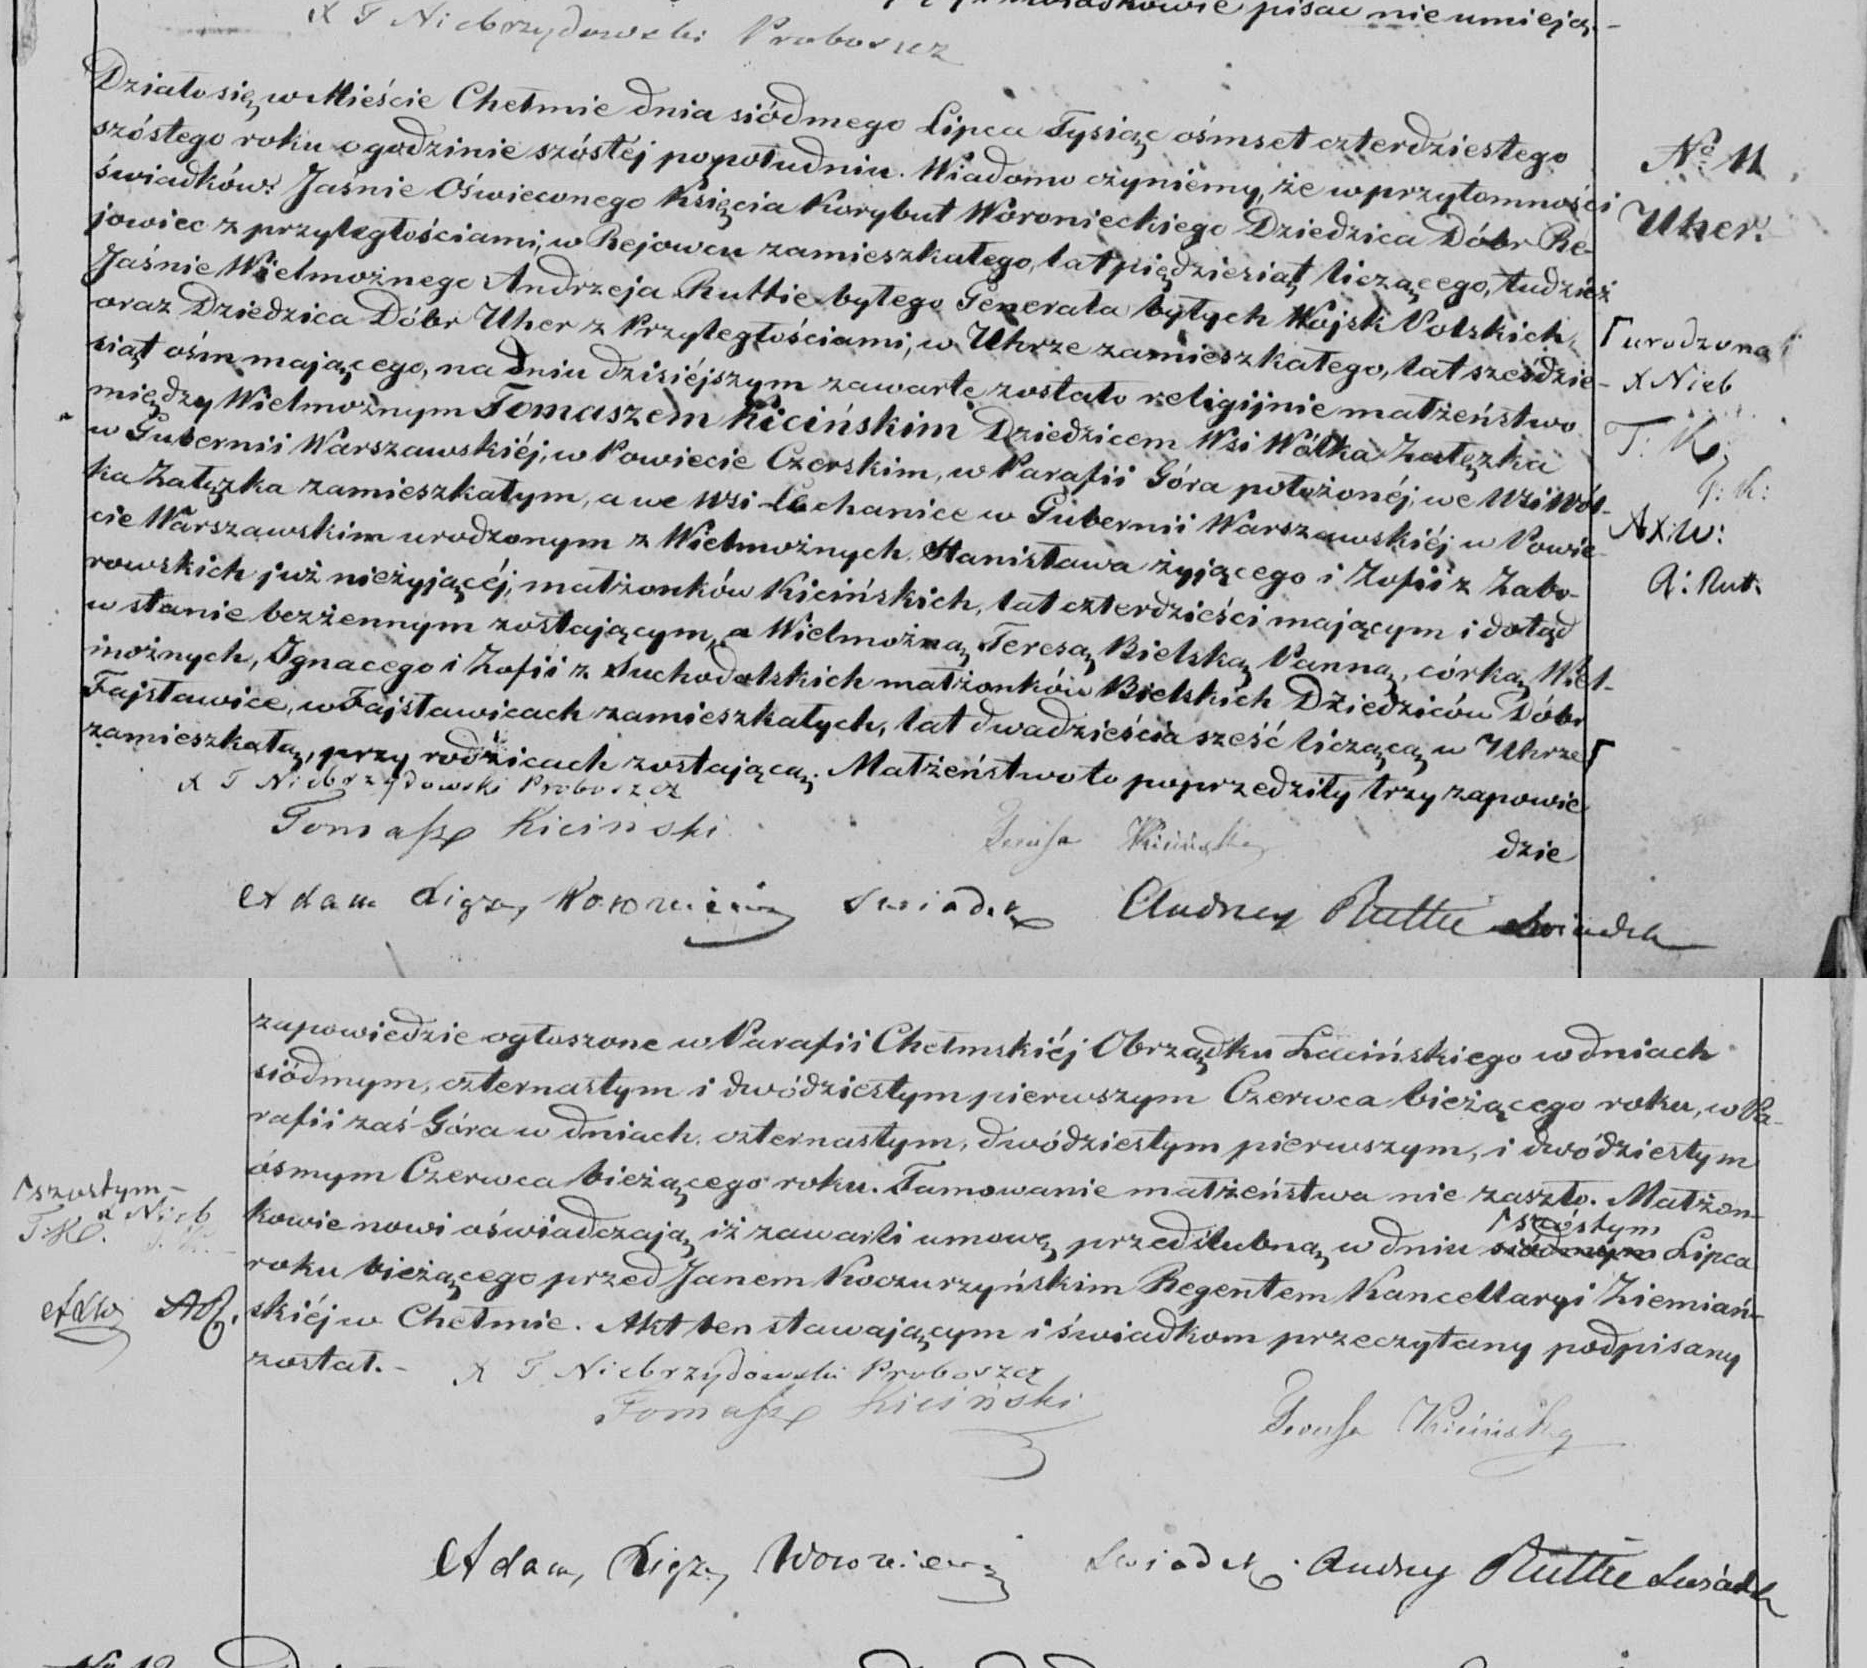 świadkowie pisać nie umieją.-
X T Niebrzydowski Proboszcz
Działo się w Mieście Chełmie dnia siódmego Lipca Tysiąc ośmset czterdziestego
szóstego roku o godzinie szóstéj popołudniu. Wiadomo czyniemy, że wprzytomności
świadków: Jaśnie Oświeconego Księcia Korybut Woronieckiego Dziedzica Dóbr Re-
jowiec z przyległościami, w Rejowcu zamieszkałego, lat pięдziesiąt liczącego, tudzież
Jaśnie Wielmożnego Andrzeja Ruttie byłego Generała byłych Wojsk Polskich,
oraz Dziedzica Dóbr Uher z Przyległościami, w Uhrze zamieszkałego, lat sześdzie-
siąt ośm mającego, na dniu dzisiéjszym zawarte zostało religijnie małżeństwo
między Wielmożnym Tomaszem Kicińskim Dziedzicem Wsi Wólka Załęzka
w Gubernii Warszawskiéj, w Powiecie Czerskim, w Parafii Góra położonéj, we Wsi Wól-
ka Załęzka zamieszkałym, a we Wsi Łychanice w Gubernii Warszawskiéj w Powie-
cie Warszawskim urodzonym z Wielmożnych Stanisława żyjącego i Zofii z Zabo-
rowskich już nieżyjącéj, małżonków Kicińskich, lat czterdzieści mającym i dotąd
w stanie bezżennym zostającym, a Wielmożną Teresą Bielską Panną, córką Wiel-
możnych, Ignacego i Zofii z Suchodolskich małżonków Bielskich Dziedziców Dóbr
Fajsławice, w Fajsławicach zamieszkałych, lat dwadzieścia sześć liczącą, w Uhrze ⌈
zamieszkałą, przy rodzicach zostającą. Małżeństwo to poprzedziły trzy zapowie
dzie
X T Niebrzydowski Proboszcz
Tomasz Kiciński
Teressa Kicińska
Adam Xiąże Woroniecki Swiadek
Andrzey Ruttie Swiadek
No 11
Uher.
⌈ urodzoną
X Nieb
T: K:
T: K:
AXW:
A: Rut.
zapowiedzie ogłoszone w Parafii Chełmskiéj Obrządku Łacińskiego w dniach
siódmym, czternastym i dwódziestym pierwszym Czerwca bieżącego roku, w Pa-
rafii zaś Góra w dniach czternastym, dwódziestym pierwszym, i dwódziestym
ósmym Czerwca bieżącego roku. Tamowanie małżeństwa nie zaszło. Małżon-
⌈ szóstym
kowie nowi oświadczają, iż zawarli umowę przedślubną w dniu siódmym Lipca
roku bieżącego przed Janem Koczurzyńskim Regentem Kancellaryi Ziemiań-
skiéj w Chełmie. Akt ten stawającym i świadkom przeczytany podpisany
został.-
X T Niebrzydowski Proboszcz
Tomasz Kiciński
Teressa Kicińska
Adam Xiąże Woroniecki Swiadek
Andrzey Ruttie Swiadek
⌈ szóstym-
X Nieb
T:K. T. K.
AXW AR.
No 12